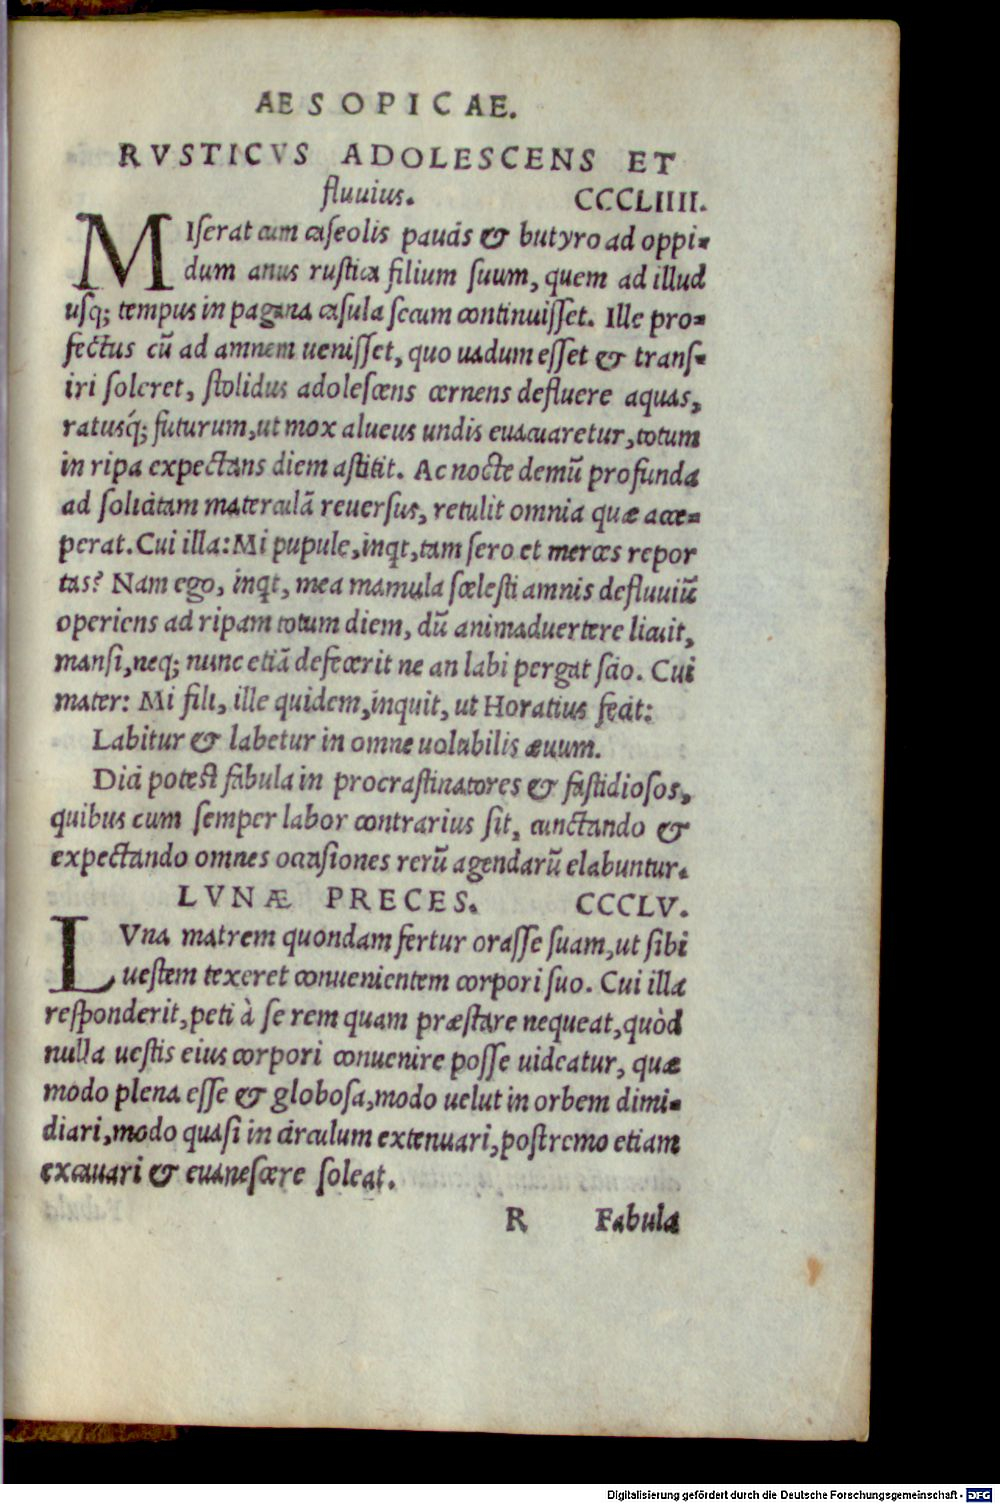 AESOPICAE.
RVSTICVS ADOLESCENS ET
fluuius. CCCLIIII.
MIserat cum caseolis paucis & butyro ad oppi-
dum anus rustica filium suum, quem ad illud
usq; tempus in pagana casula secum continuisset. Ille pro-
fectus cū ad amnem uenisset, quo uadum esset & trans-
iri soleret, stolidus adolescens cernens defluere aquas,
ratusq́; futurum, ut mox alueus undis euacuaretur, totum
in ripa expectans diem astitit. Ac nocte demū profunda
ad solicitam materculā reuersus, retulit omnia quæ acce-
perat. Cui illa: Mi pupule, inqt, tam sero et merces repor
tas? Nam ego, inqt, mea mamula scelesti amnis defluuiū
operiens ad ripam totum diem, dū animaduertere licuit,
mansi, neq; nunc etiā defecerit ne an labi pergat scio. Cui
mater: Mi fili, ille quidem, inquit, ut Horatius fecit:
Labitur & labetur in omne uolubilis æuum.
Dici potest fabula in procrastinatores & fastidiosos,
quibus cum semper labor contrarius sit, cunctando &
expectando omnes occasiones rerū agendarū elabuntur.
LVNÆ PRECES. CCCLV.
LVna matrem quondam fertur orasse suam, ut sibi
uestem texeret conuenientem corpori suo. Cui illa
responderit, peti à se rem quam præstare nequeat, quòd
nulla uestis eius corpori conuenire posse uideatur, quæ
modo plena esse & globosa, modo uelut in orbem dimi-
diari, modo quasi in circulum extenuari, postremo etiam
excauari & euanescere soleat.
R Fabula
Digitalisierung gefördert durch die Deutsche Forschungsgemeinschaft - DFG